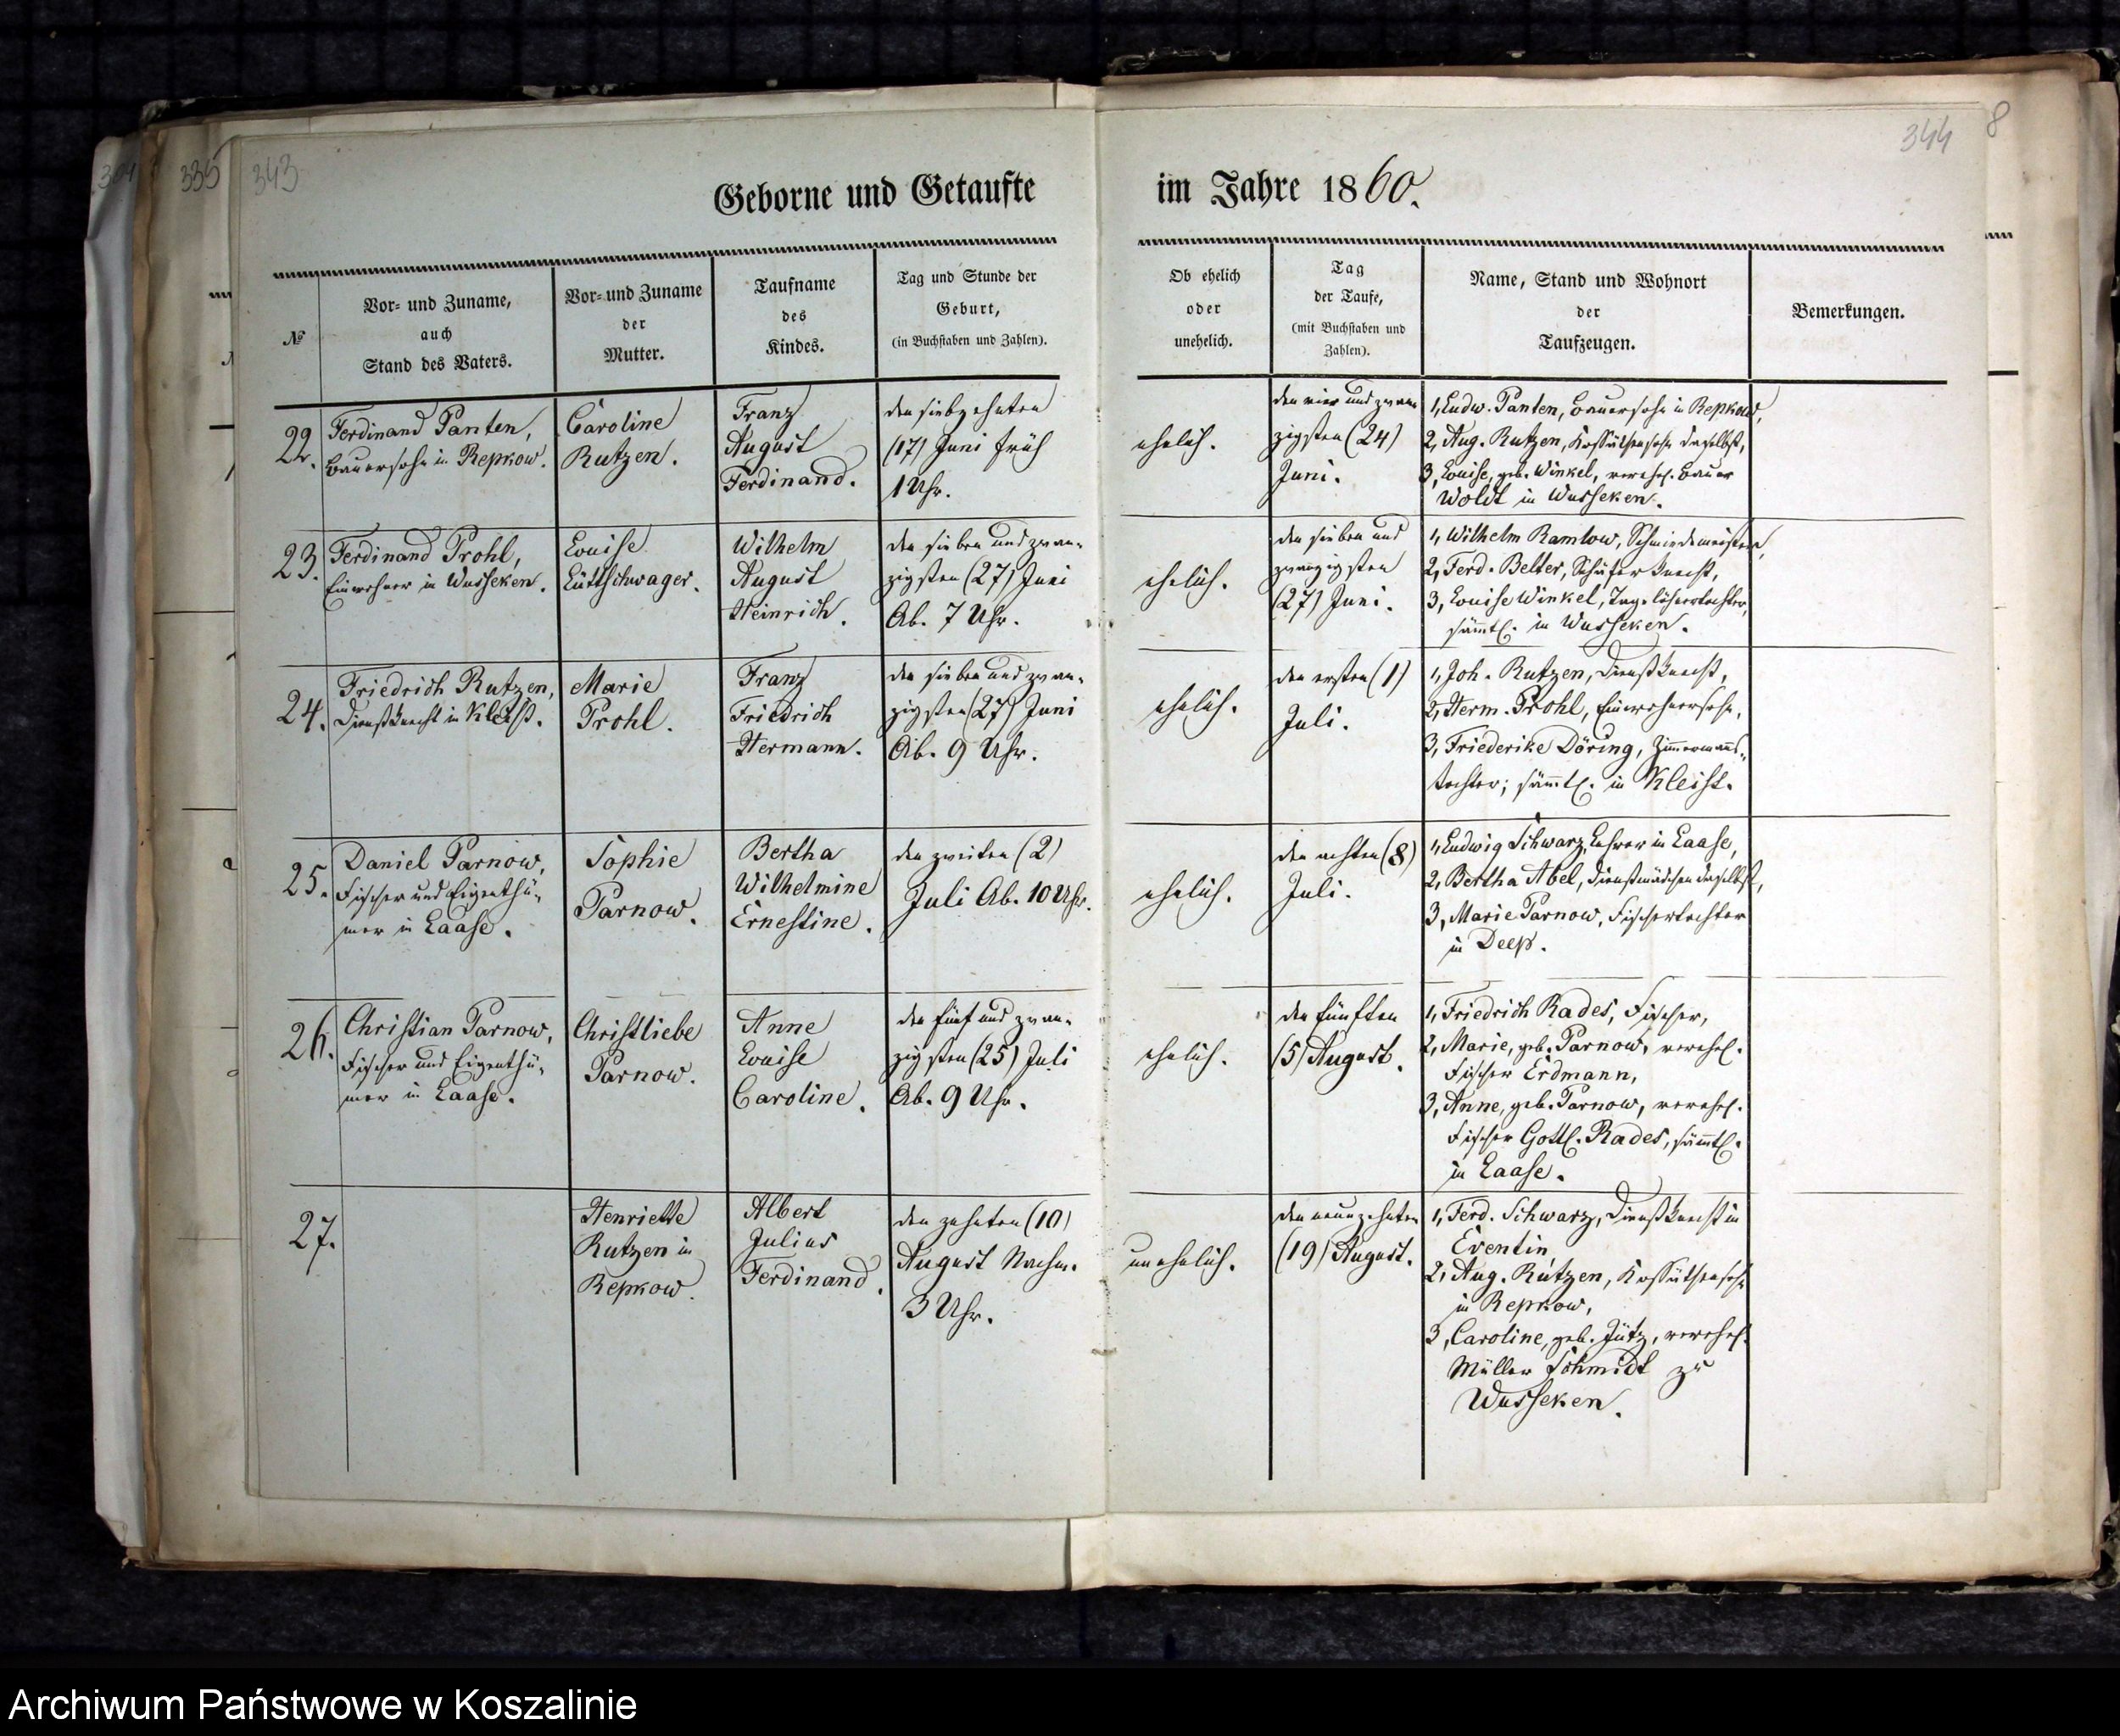 304
335
343
344
8
Geborne und Getaufte im Jahre 1860.
№
Vor- und Zuname,
auch
Stand des Vaters.
Vor- und Zuname
der
Mutter.
Taufname
des
Kindes.
Tag und Stunde der
Geburt,
(in Buchstaben und Zahlen).
Ob ehelich
oder
unehelich.
Tag
der Taufe,
(mit Buchstaben und
Zahlen).
Name, Stand und Wohnort
der
Taufzeugen.
Bemerkungen.
22.
Ferdinand Panten,
Bauersohn in Repkow.
Caroline
Rutzen.
Franz
August
Ferdinand.
den siebzehnten
(17) Juni früh
1 Uhr.
ehelich.
den vier und zwan
zigsten (24)
Juni.
1, Ludw. Panten, Bauersohn in Repkow,
2, Aug. Rutzen, Kossäthensohn daselbst,
3, Louise, geb. Winkel, verehel. Bauer
Woldt in Wusseken.
23.
Ferdinand Prohl,
Einwohner in Wusseken.
Louise
Lüttschwager.
Wilhelm
August
Heinrich.
den sieben und zwan-
zigsten (27) Juni
Ab. 7 Uhr.
ehelich.
den sieben und
zwanzigsten
(27) Juni.
1, Wilhelm Ramlow, Schmiedemeister,
2, Ferd. Belter, Schäferknecht,
3, Louise Winkel, Tagelöhnertochter,
sämtl. in Wusseken.
24.
Friedrich Rutzen,
Dienstknecht in Kleist.
Marie
Prohl.
Franz
Friedrich
Hermann.
den sieben und zwan-
zigsten (27) Juni
Ab. 9 Uhr.
ehelich.
den ersten (1)
Juli.
1, Joh. Rutzen, Dienstknecht,
2, Herm. Prohl, Einwohnersohn,
3, Friederike Döring, Zimmermanns-
tochter; sämtl. in Kleist.
25.
Daniel Parnow,
Fischer und Eigenthü-
mer in Laase.
Sophie
Parnow.
Bertha
Wilhelmine
Ernestine.
den zweiten (2)
Juli Ab. 10 Uhr.
ehelich.
den achten (8)
Juli.
1, Ludwig Schwarz, Lehrer in Laase,
2, Bertha Abel, Dienstmädchen daselbst,
3, Marie Parnow, Fischertochter
in Deep.
26.
Christian Parnow,
Fischer und Eigenthü-
mer in Laase.
Christliebe
Parnow.
Anne
Louise
Caroline.
den fünf und zwan-
zigsten (25) Juli
Ab. 9 Uhr.
ehelich.
den fünften
(5) August.
1, Friedrich Rades, Fischer,
2, Marie, geb. Parnow, verehel.
Fischer Erdmann,
3, Anne, geb. Parnow, verehel.
Fischer Gottl. Rades, sämtl.
in Laase.
27.
Henriette
Rutzen in
Repkow.
Albert
Julius
Ferdinand.
den zehnten (10)
August Nachm.
3 Uhr.
unehelich.
den neunzehnten
(19) August.
1, Ferd. Schwarz, Dienstknecht in
Eventin,
2, Aug. Rutzen, Kossäthensohn
in Repkow,
3, Caroline, geb. Jütz, verehel.
Müller Schmidt zu
Wusseken.
Archiwum Państwowe w Koszalinie